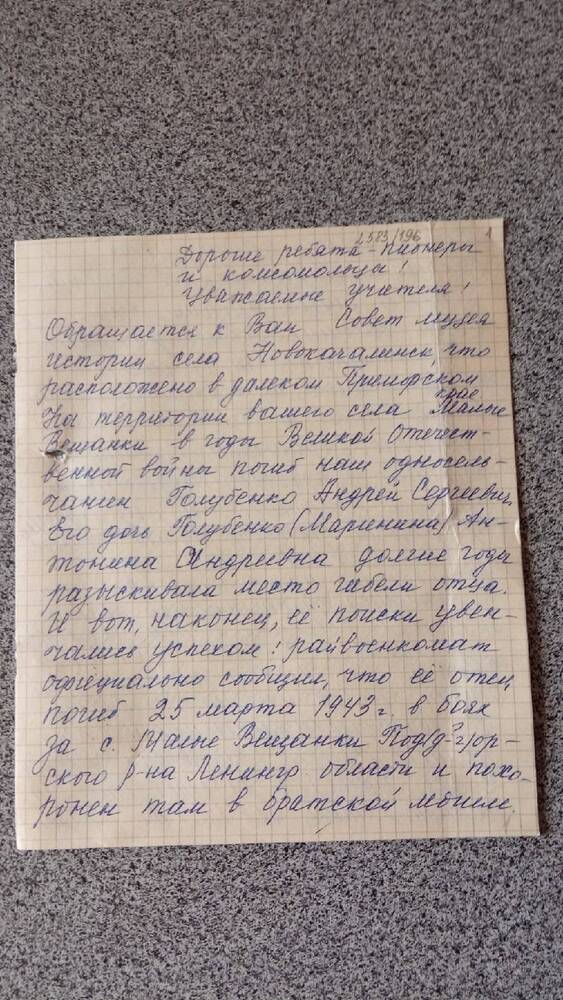 2583/196
1
Дорогие ребята - пионеры
и комсомольцы!
Уважаемые учителя!
Обращается к Вам Совет музея
истории села Новокачалинск, что
расположено в далеком Приморском
крае
На территории вашего села Малые
Вещанки в годы Великой Отечест-
венной войны погиб наш односель-
чанин Голубенко Андрей Сергеевич
Его дочь Голубенко (Маринина) Ан-
тонина Андреевна долгие годы
разыскивала место гибели отца.
И вот, наконец, её поиски увен-
чались успехом: райвоенкомат
официально сообщил, что её отец
погиб 25 марта 1943 г. в боях
за с. Малые Вещанки Под(д-г)ор-
ского р-на Ленингр. области и похо-
ронен там в братской могиле.